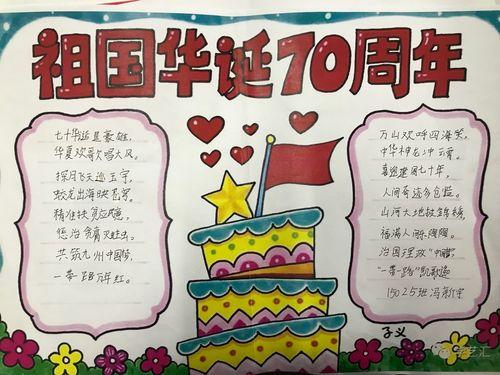 祖国华诞70周年
七十华诞显豪雄，
华夏欢歌唱大风。
探月飞天巡玉宇，
蛟龙出海映苍穹。
精准扶贫应民意，
惩治贪腐灭蛀虫。
共筑九州中国梦，
一带一路万年红。
万山欢呼四海笑，
中华神龙冲云霄。
喜迎建国七十年，
人间奇迹多自豪。
山河大地披锦绣，
福满人间
治国理政
"一带一路"凯歌
15025班冯新宇
子义
学艺汇